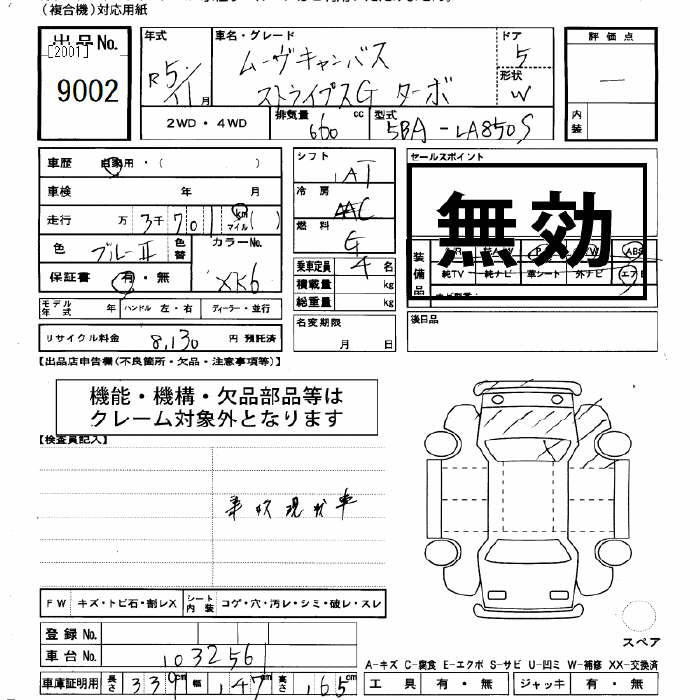 (複合機)対応用紙
出品No.
[2001]
9002
年式
R5/11月
車名・グレード
ムーヴキャンバス
ストライプスG ターボ
ドア
5
形状
W
評価点
―
内装
2WD・4WD
排気量
660 cc
型式
5BA-LA850S
車歴 自家用・( )
車検 年 月
走行 万 3千 7 0 1 km マイル ( )
色 ブルーII 色替
カラーNo.
XK6
保証書 有・無
シフト
AT
冷房
AAC
燃料
G
乗車定員 4 名
積載量 kg
総重量 kg
セールスポイント
無効
装備品
ABS
純TV 純ナビ 革シート 外ナビ エアB
モデル年式 年 ハンドル 左・右 ディーラー・並行
リサイクル料金 8,130 円 預託済
名変期限
月 日
後日品
【出品店申告欄(不良箇所・欠品・注意事項等)】
機能・機構・欠品部品等は
クレーム対象外となります
【検査員記入】
事故現状車
FW キズ・トビ石・割レX シート内装 コゲ・穴・汚レ・シミ・破レ・スレ
登録No.
車台No. 103256
車庫証明用 長さ 339cm 幅 147cm 高さ 165cm
スペア
A-キズ C-腐食 E-エクボ S-サビ U-凹ミ W-補修 XX-交換済
工具 有・無 ジャッキ 有・無